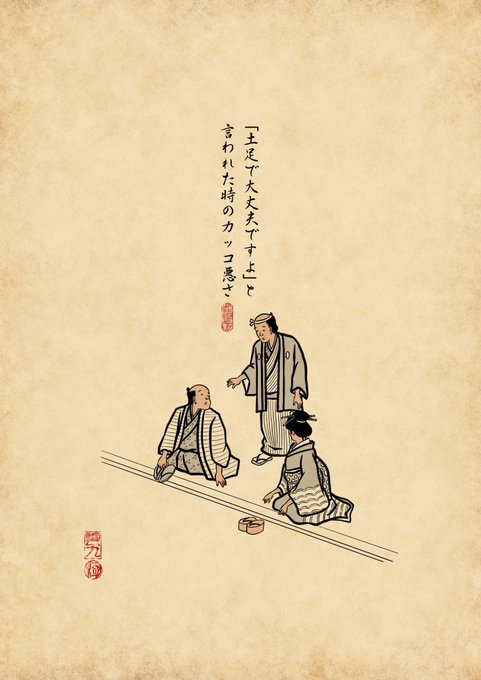 「土足で大丈夫ですよ」と
言われた時のカッコ悪さ